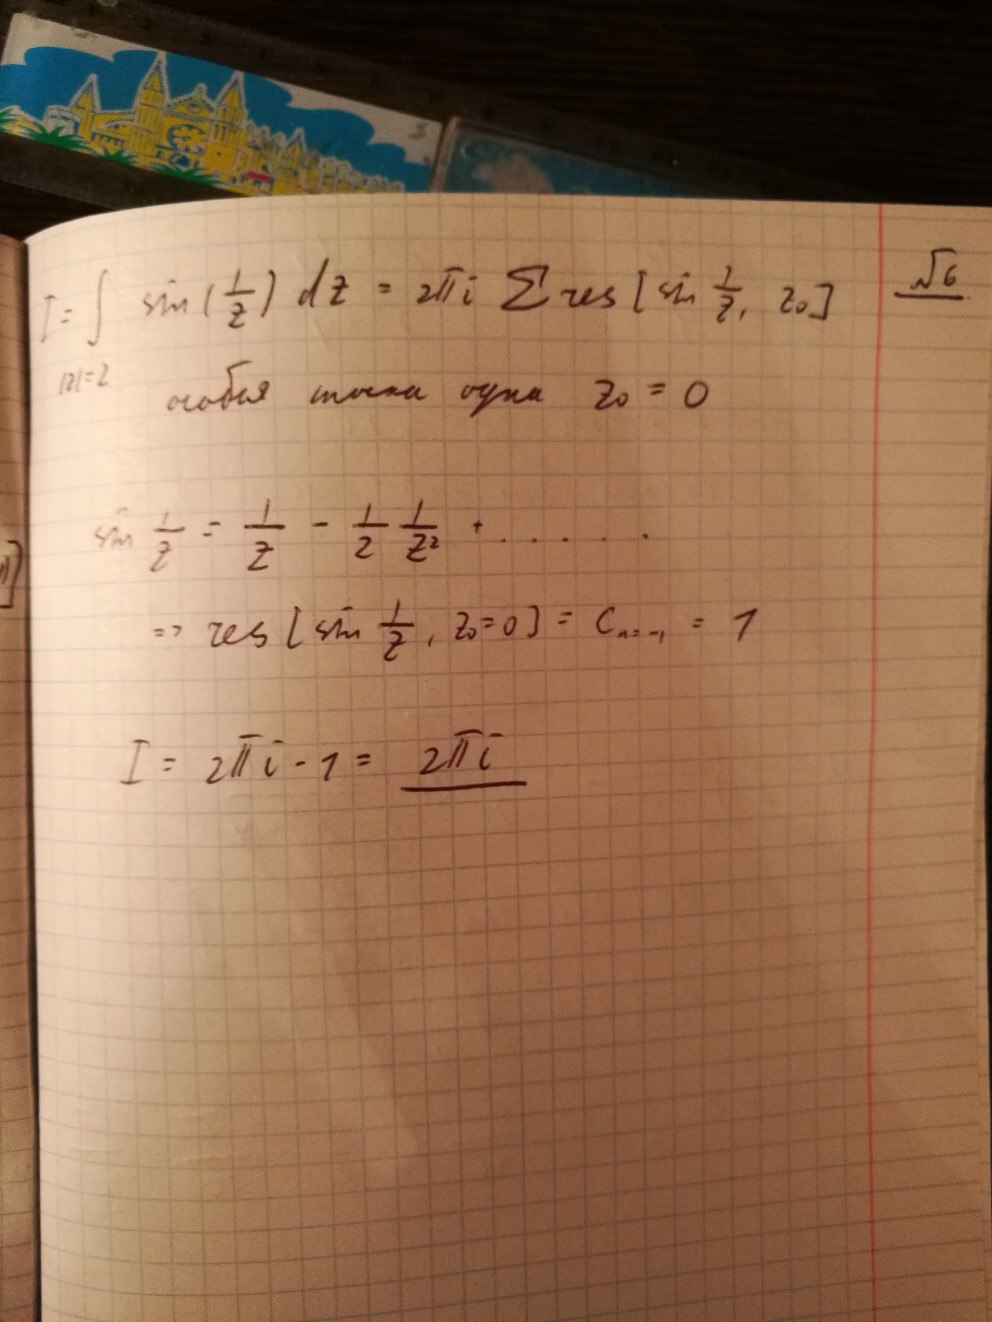 I = ∫ sin(1/z) dz = 2πi Σ res [sin 1/z, z₀] √6
|z|=2
особая точка одна z₀ = 0
sin 1/z = 1/z - 1/2 1/z² + . . . . . .
=> res [sin 1/z, z₀=0] = Cₙ₌₋₁ = 1
I = 2πi · 1 = 2πi